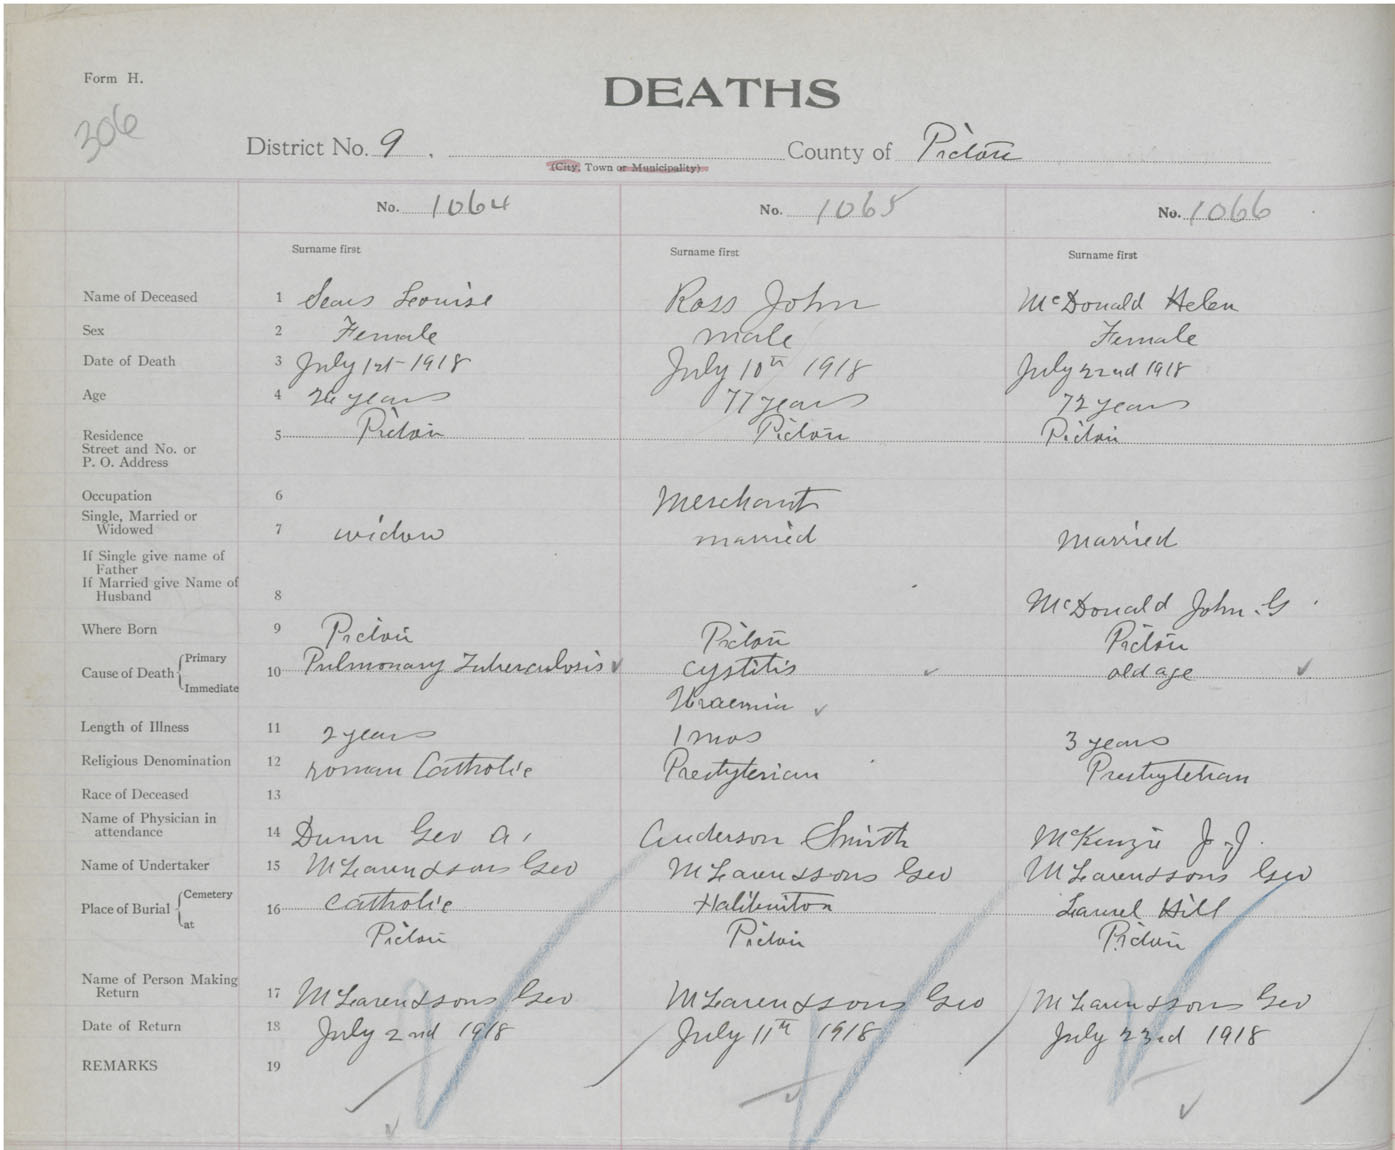 Form H.
306
DEATHS
District No. 9. County of Pictou
(City, Town or Municipality)
No. 1064 No. 1065 No. 1066
Surname first Surname first Surname first
Name of Deceased 1 Sears Louise Ross John McDonald Helen
Sex 2 Female male Female
Date of Death 3 July 1st 1918 July 10th 1918 July 22nd 1918
Age 4 26 years 77 years 72 years
Residence 5 Pictou Pictou Pictou
Street and No. or
P. O. Address
Occupation 6 Merchant
Single, Married or
Widowed 7 widow married married
If Single give name of
Father
If Married give Name of
Husband 8 McDonald John. G
Where Born 9 Pictou Pictou Pictou
Cause of Death Primary 10 Pulmonary Tuberculosis cystitis old age
Immediate Uraemia
Length of Illness 11 2 years 1 mos 3 years
Religious Denomination 12 roman Catholic Presbyterian Presbyterian
Race of Deceased 13
Name of Physician in
attendance 14 Dunn Geo A. Anderson Smith McKenzie J. J.
Name of Undertaker 15 McLaren & sons Geo McLaren & sons Geo McLaren & sons Geo
Place of Burial Cemetery 16 Catholic Haliburton Laurel Hill
at Pictou Pictou Pictou
Name of Person Making
Return 17 McLaren & sons Geo McLaren & sons Geo McLaren & sons Geo
Date of Return 18 July 2nd 1918 July 11th 1918 July 23rd 1918
REMARKS 19